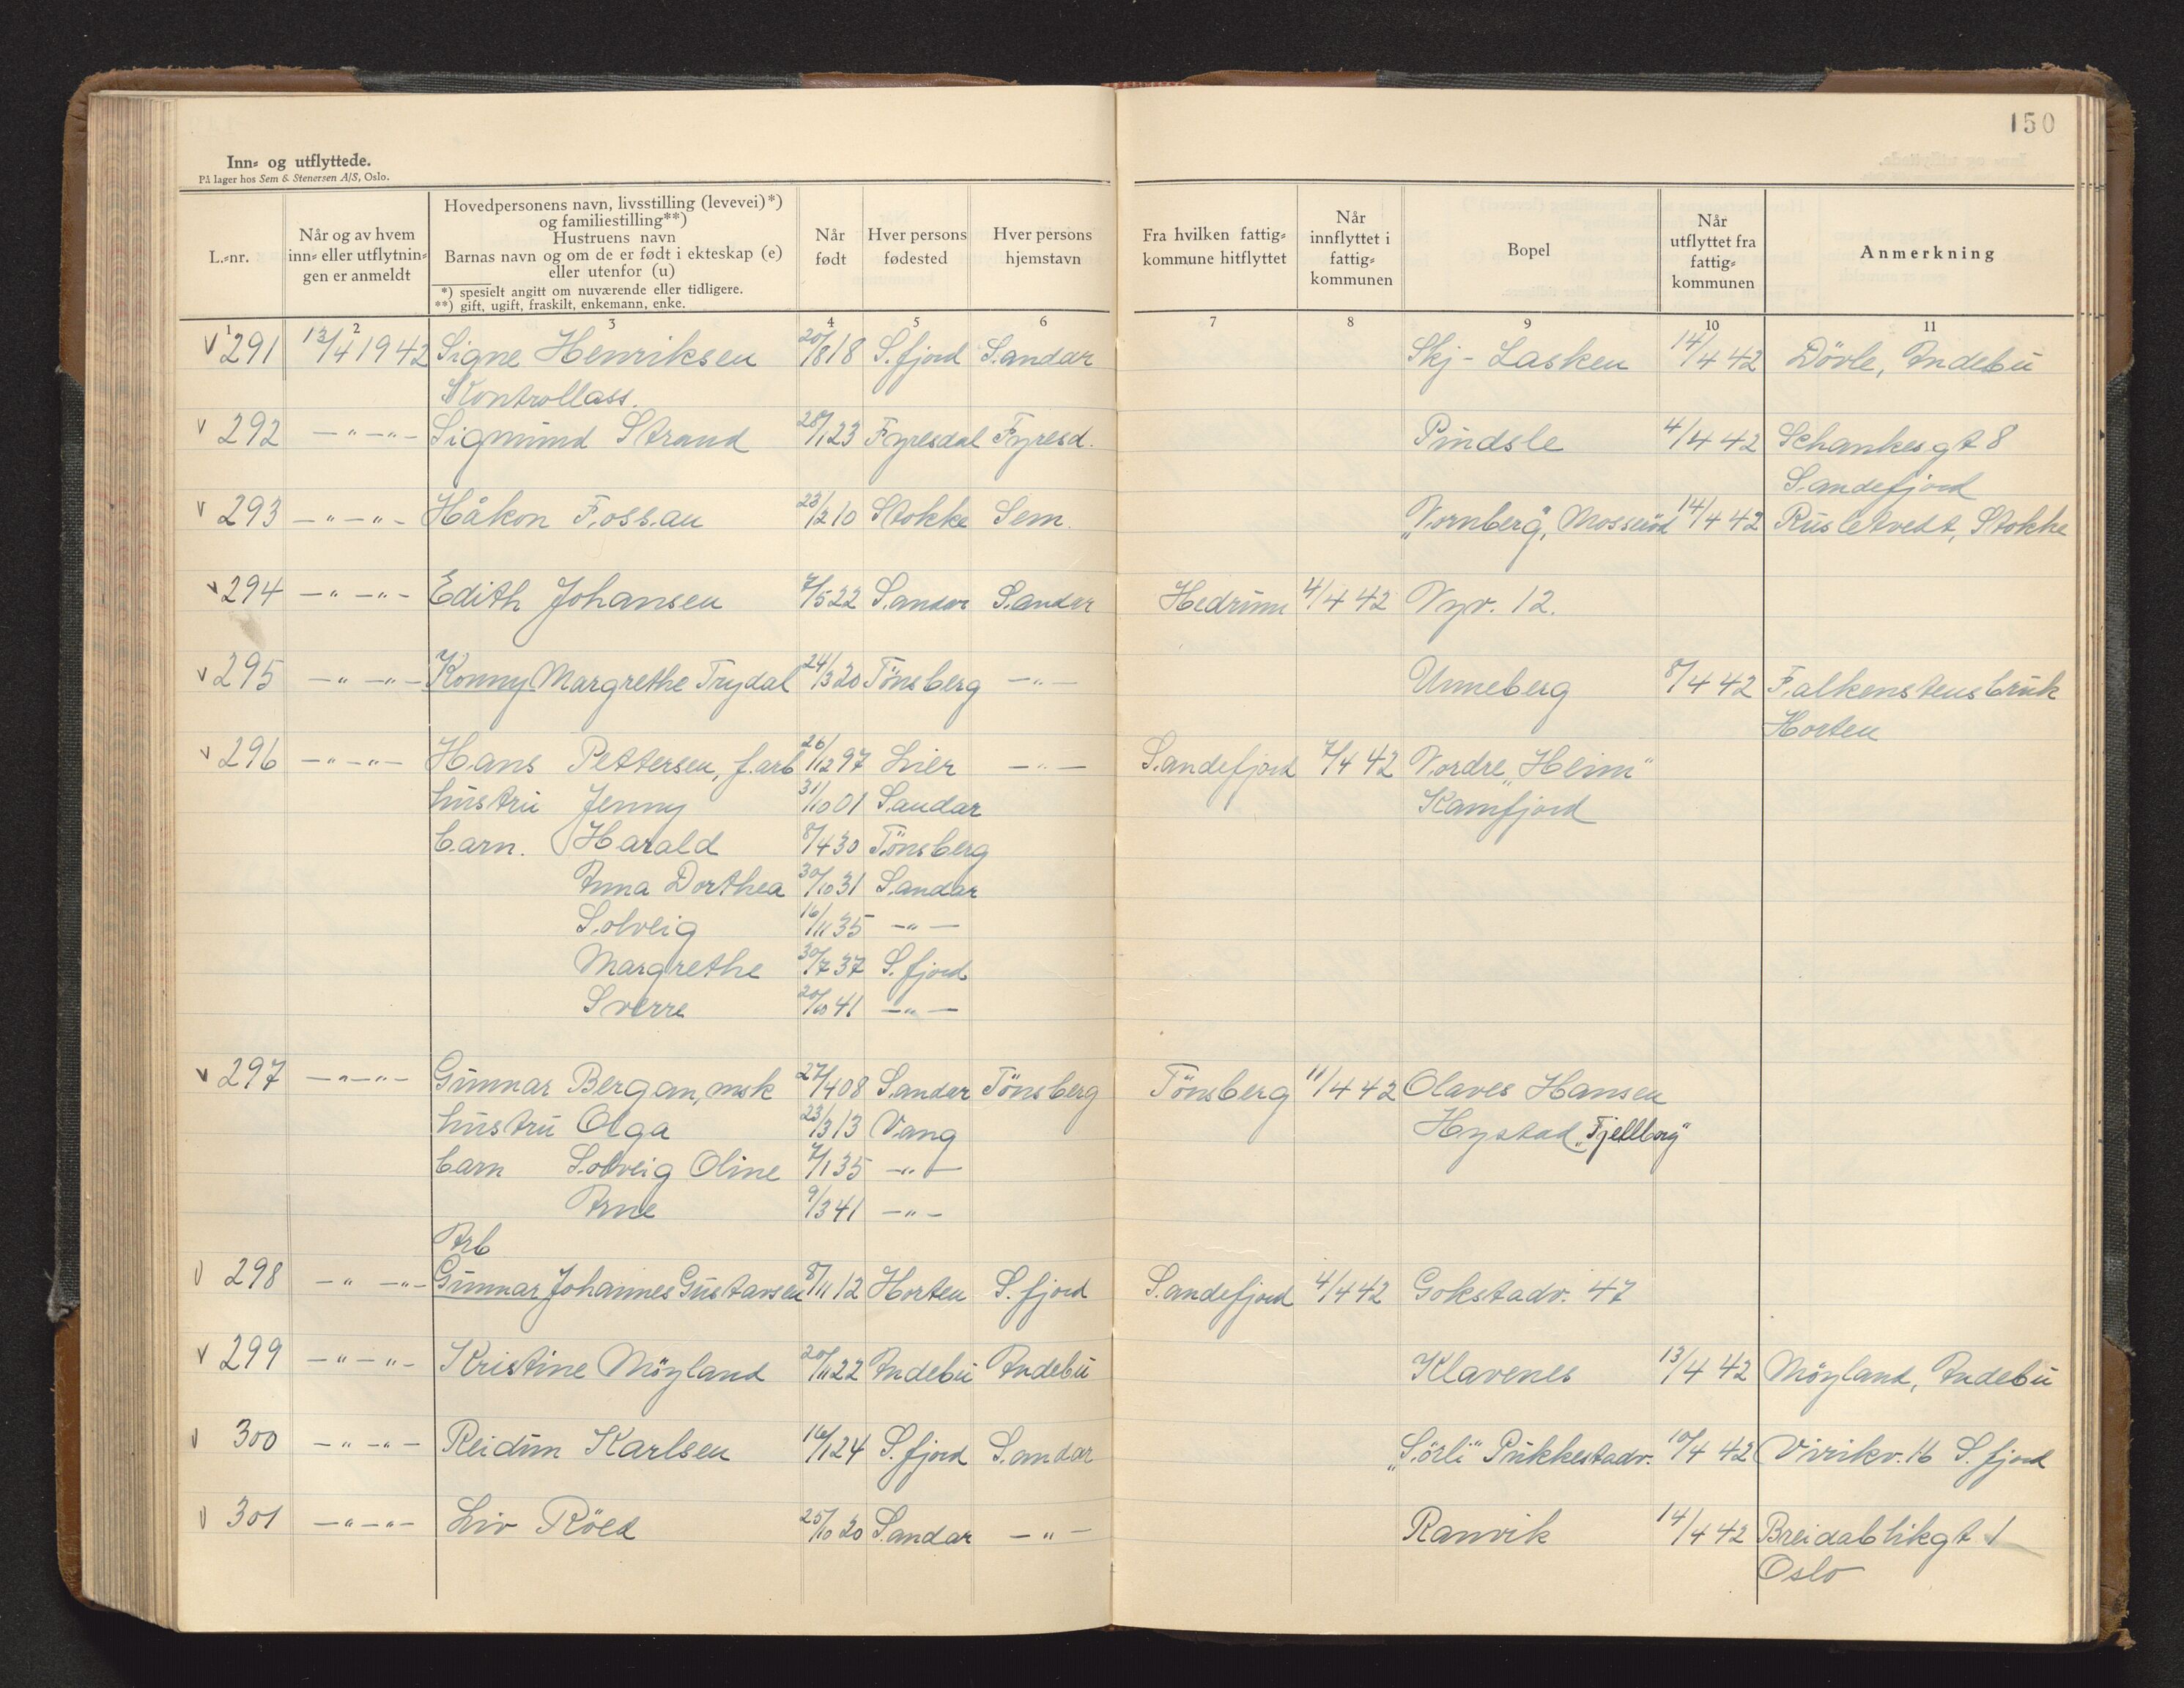 150
Inn- og utflyttede.
På lager hos Sem & Stenersen A/S, Oslo.
L.-nr. | Når og av hvem inn- eller utflytningen er anmeldt | Hovedpersonens navn, livsstilling (levevei)*) og familiestilling**) Hustruens navn Barnas navn og om de er født i ekteskap (e) eller utenfor (u) *) spesielt angitt om nuværende eller tidligere. **) gift, ugift, fraskilt, enkemann, enke. | Når født | Hver persons fødested | Hver persons hjemstavn | Fra hvilken fattig-kommune hitflyttet | Når innflyttet i fattig-kommunen | Bopel | Når utflyttet fra fattig-kommunen | Anmerkning
1 2 3 4 5 6 7 8 9 10 11
v 291 13/4 1942 Signe Henriksen 20/8 18 S.fjord Sandar Skj-Lasken 14/4 42 Dövle, Andebu
Kontrollass.
v 292 -"-"- Sigmund Strand 28/1 23 Fyresdal Fyresd. Pindsle 4/4 42 Schankesgt 8
Sandefjord
v 293 -"-"- Håkon Fossan 23/2 10 Stokke Sem. "Vornberg", Mosserød 14/4 42 Rusletvedt, Stokke
v 294 -"-"- Edith Johansen 7/5 22 Sandar Sandar Hedrum 4/4 42 Nyv. 12.
v 295 -"-"- Konny Margrethe Trydal 24/3 20 Tönsberg -"- Unneberg 8/4 42 Falkenstensbruk
Horten
v 296 -"-"- Hans Pettersen, f.arb 26/12 97 Lier -"- Sandefjord 7/4 42 Nordre "Heim"
hustru Jenny 31/10 01 Sandar Kamfjord
barn. Harald 8/4 30 Tönsberg
Anna Dorthea 30/10 31 Sandar
Solveig 16/11 35 -"-
Margrethe 30/7 37 S.fjord
Sverre 20/10 41 -"-
v 297 -"-"- Gunnar Bergan, msk 27/4 08 Sandar Tönsberg Tönsberg 11/4 42 Olaves Hansen
hustru Olga 23/3 13 Vang Hystad "Fjellborg"
barn Solveig Oline 7/1 35 -"-
Arne 9/3 41 -"-
Arb
v 298 -"-"- Gunnar Johannes Gustavsen 8/11 12 Horten S.fjord Sandefjord 4/4 42 Gokstadv. 47
v 299 -"-"- Kristine Möyland 20/11 22 Andebu Andebu Klavenes 13/4 42 Möyland, Andebu
v 300 -"-"- Reidun Karlsen 16/1 24 S.fjord Sandar "Sörli" Pukkestadv. 10/4 42 Virikv. 16 S.fjord
v 301 -"-"- Liv Röed 25/10 20 Sandar -"- Ranvik 14/4 42 Breidablikgt 1
Oslo